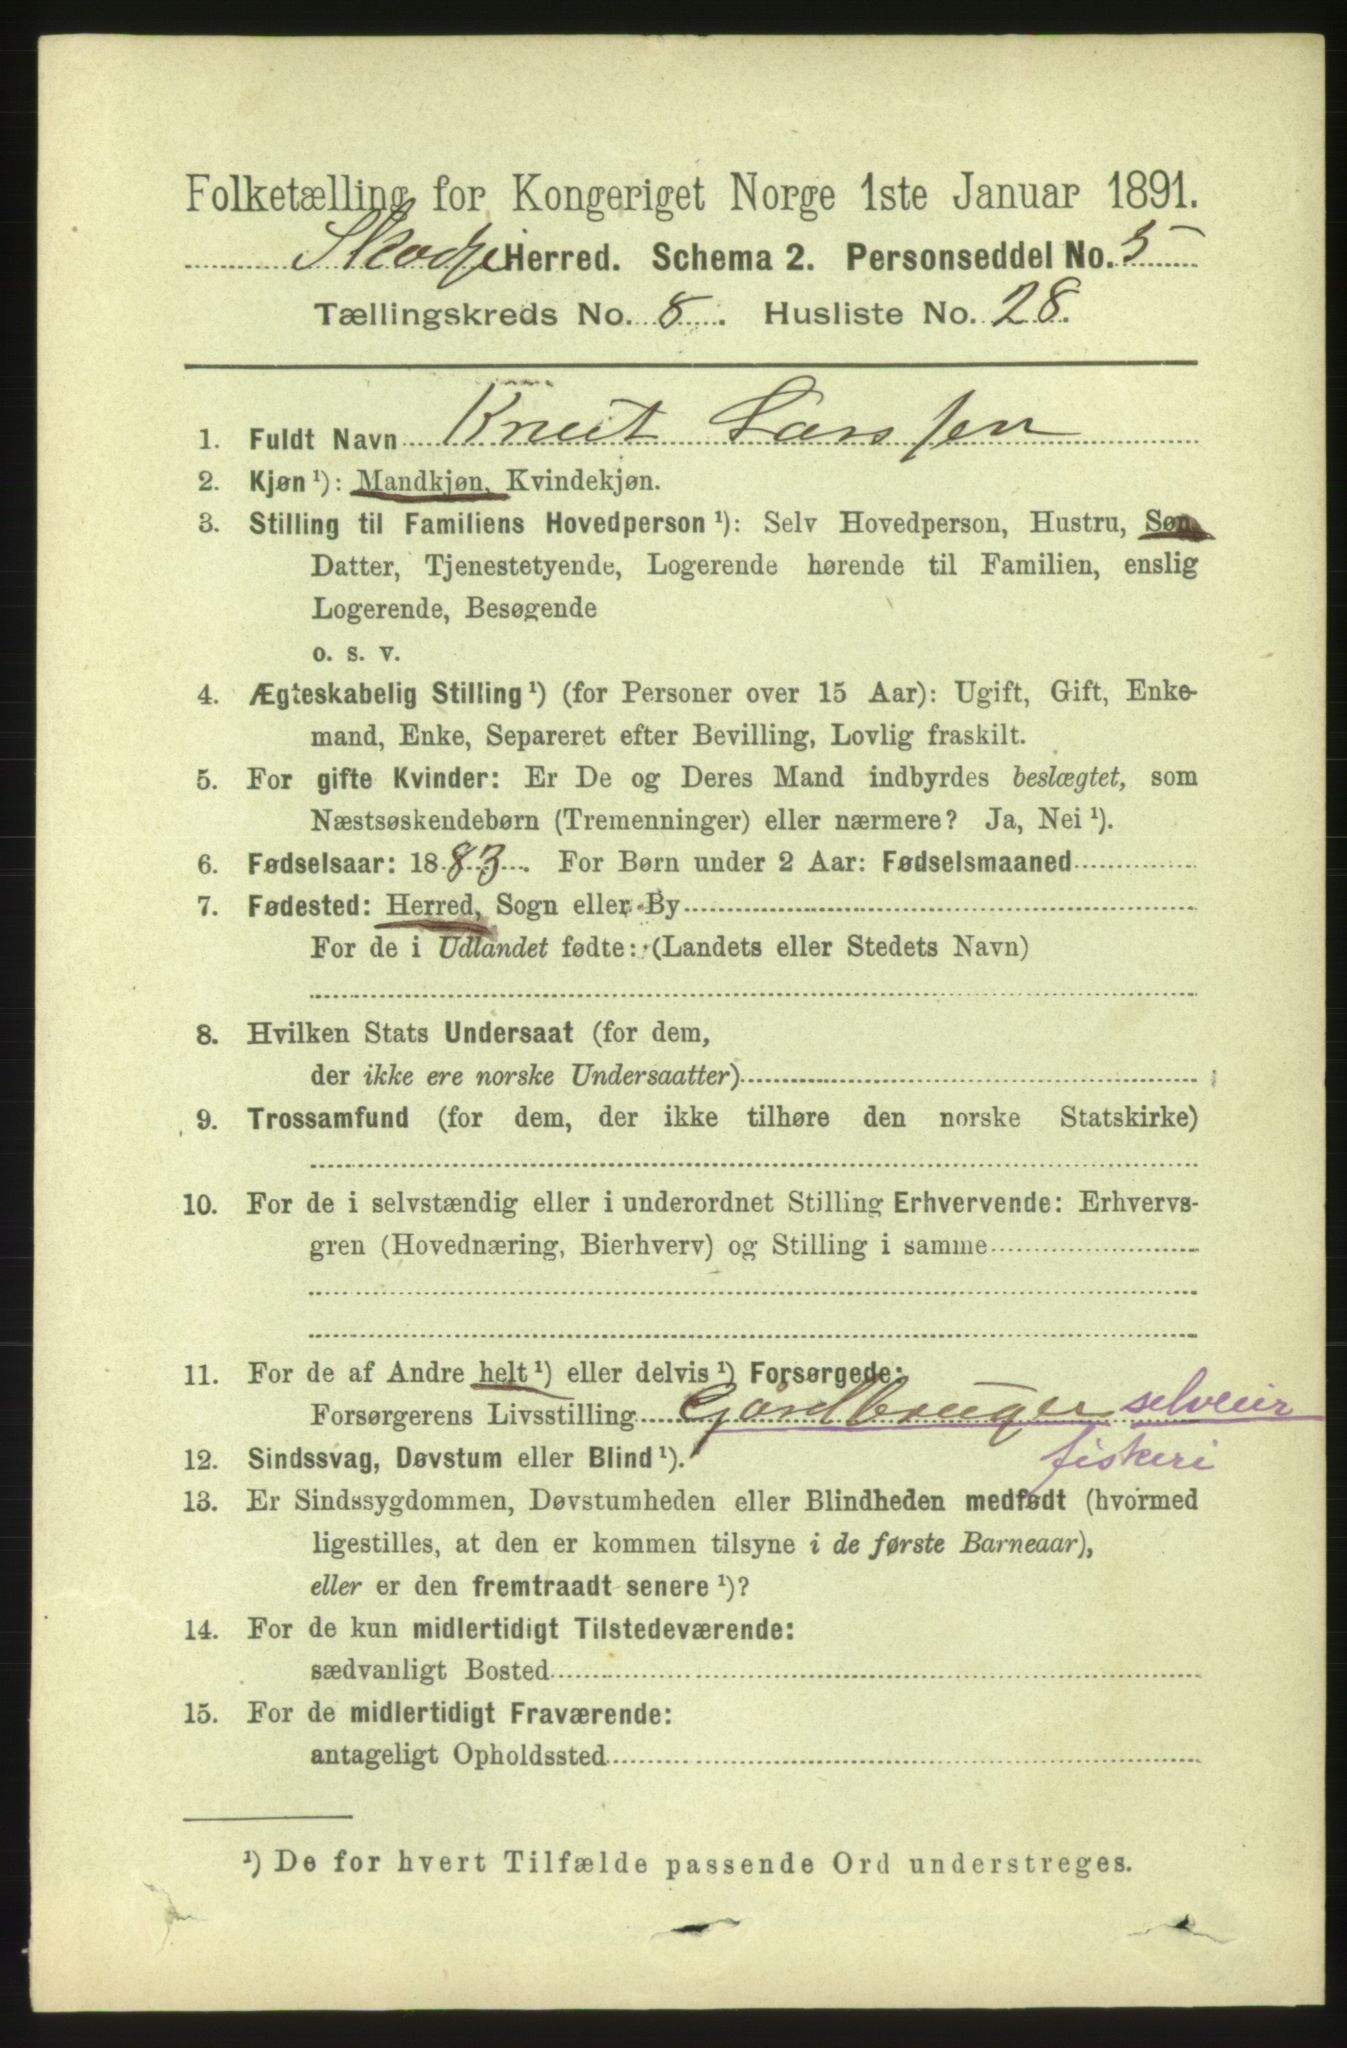 Folketælling for Kongeriget Norge 1ste Januar 1891.
Skodje Herred. Schema 2. Personseddel No. 5
Tællingskreds No. 8. Husliste No. 28.
1. Fuldt Navn Knut Larssen
2. Kjøn ¹): Mandkjøn, Kvindekjøn.
3. Stilling til Familiens Hovedperson ¹): Selv Hovedperson, Hustru, Søn,
Datter, Tjenestetyende, Logerende hørende til Familien, enslig
Logerende, Besøgende
o. s. v.
4. Ægteskabelig Stilling ¹) (for Personer over 15 Aar): Ugift, Gift, Enke-
mand, Enke, Separeret efter Bevilling, Lovlig fraskilt.
5. For gifte Kvinder: Er De og Deres Mand indbyrdes beslægtet, som
Næstsøskendebørn (Tremenninger) eller nærmere? Ja, Nei ¹).
6. Fødselsaar: 1883. For Børn under 2 Aar: Fødselsmaaned
7. Fødested: Herred, Sogn eller By
For de i Udlandet fødte: (Landets eller Stedets Navn)
8. Hvilken Stats Undersaat (for dem,
der ikke ere norske Undersaatter)
9. Trossamfund (for dem, der ikke tilhøre den norske Statskirke)
10. For de i selvstændig eller i underordnet Stilling Erhvervende: Erhvervs-
gren (Hovednæring, Bierhverv) og Stilling i samme
11. For de af Andre helt ¹) eller delvis ¹) Forsørgede:
Forsørgerens Livsstilling Gårdbruger selveier
fiskeri
12. Sindssvag, Døvstum eller Blind ¹).
13. Er Sindssygdommen, Døvstumheden eller Blindheden medfødt (hvormed
ligestilles, at den er kommen tilsyne i de første Barneaar),
eller er den fremtraadt senere ¹)?
14. For de kun midlertidigt Tilstedeværende:
sædvanligt Bosted
15. For de midlertidigt Fraværende:
antageligt Opholdssted
¹) De for hvert Tilfælde passende Ord understreges.